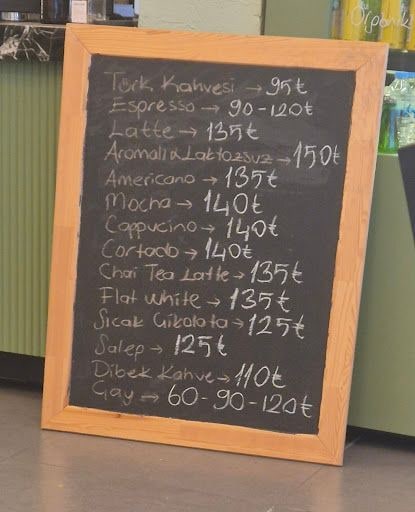 Organik
Türk Kahvesi → 95₺
Espresso → 90-120₺
Latte → 135₺
Aromalı & Laktozsuz → 150₺
Americano → 135₺
Mocha → 140₺
Cappucino → 140₺
Cortado → 140₺
Chai Tea Latte → 135₺
Flat white → 135₺
Sıcak Çikolata → 125₺
Salep → 125₺
Dibek Kahve → 110₺
Çay → 60-90-120₺